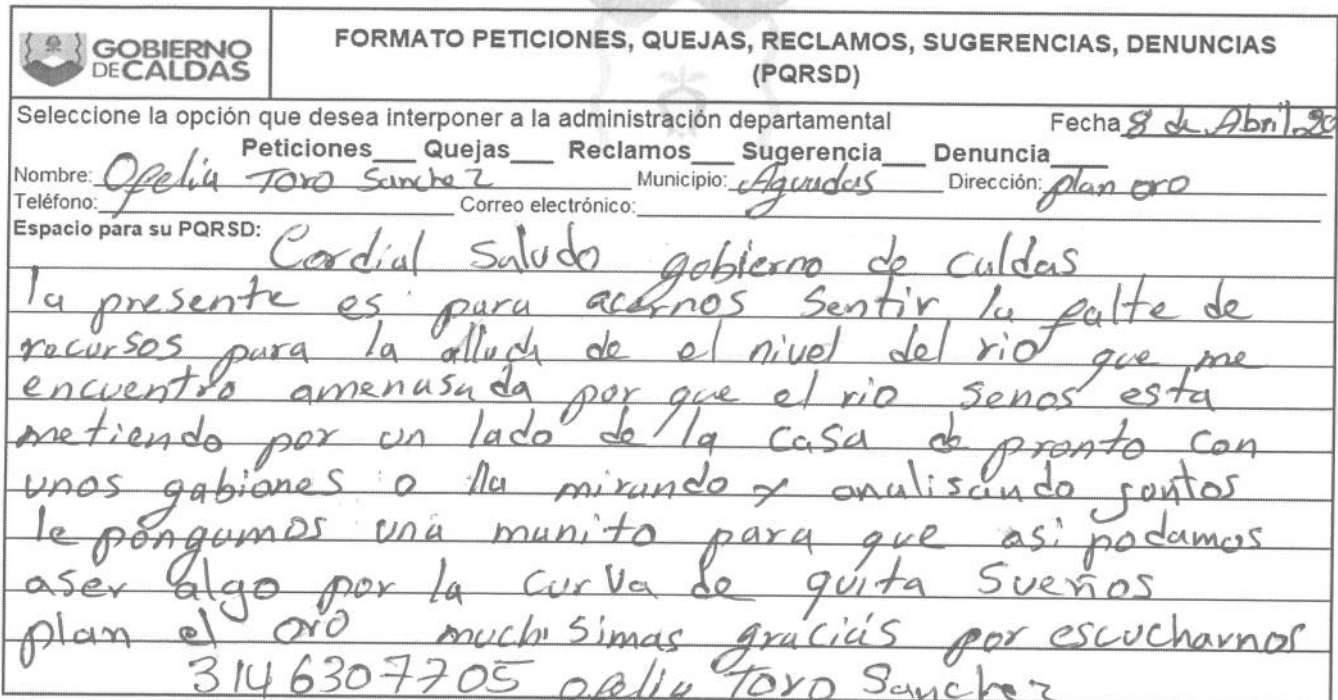 GOBIERNO
DE CALDAS
FORMATO PETICIONES, QUEJAS, RECLAMOS, SUGERENCIAS, DENUNCIAS
(PQRSD)
Seleccione la opción que desea interponer a la administración departamental Fecha 8 de Abril 20
Peticiones___ Quejas___ Reclamos___ Sugerencia___ Denuncia___
Nombre: Ofelia Toro Sanchez Municipio: Aguadas Dirección: plan oro
Teléfono: Correo electrónico:
Espacio para su PQRSD:
Cordial Saludo gobierno de caldas
la presente es para acernos Sentir la falte de
recursos para la alluda de el nivel del rio que me
encuentro amenasada por que el rio senos esta
metiendo por un lado de la casa de pronto con
unos gabiones o lla mirando y analisando juntos
le pongamos una manito para que asi podamos
aser algo por la curva de quita Sueños
plan el oro muchisimas gracias por escucharnos
3146307705 ofelia Toro Sanchez